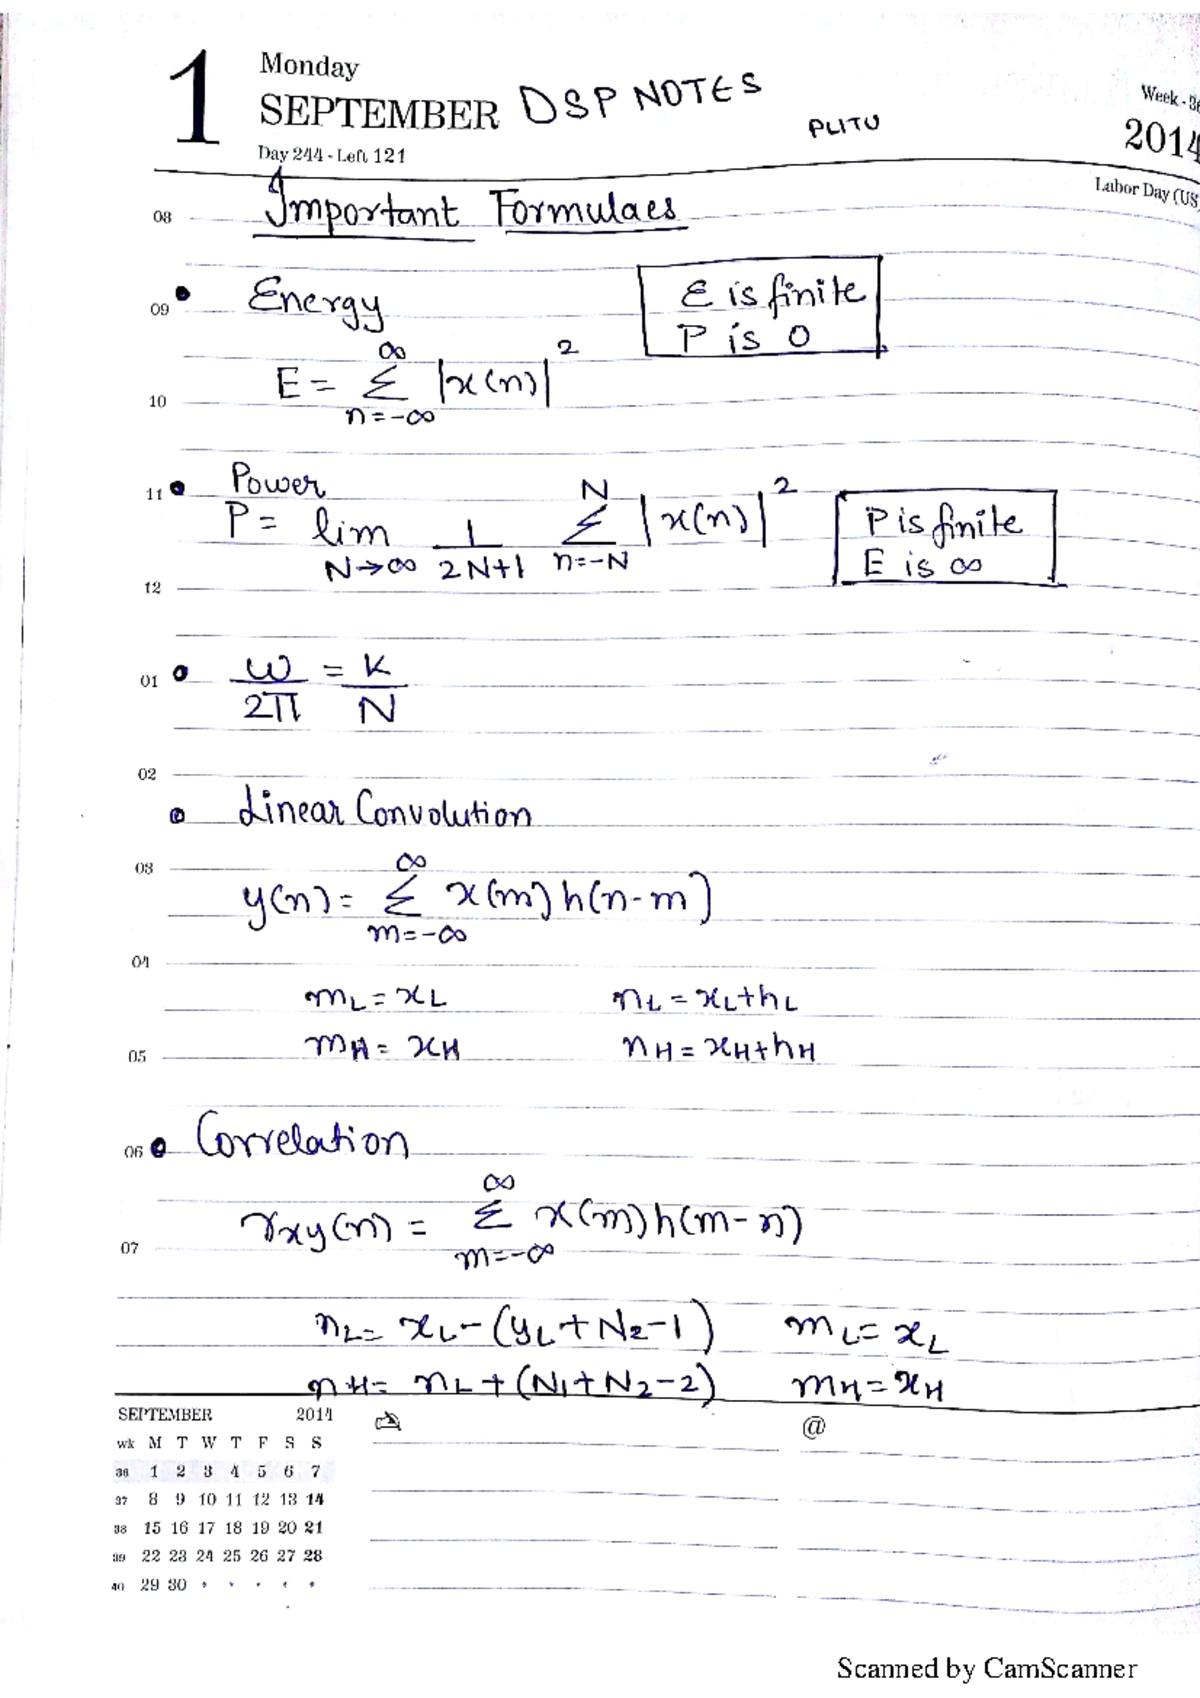 1
Monday
SEPTEMBER DSP NOTES
PLITU
Week - 36
2014
Day 244 - Left 121
Labor Day (US)
08 Important Formulaes
09 • Energy
E is finite
P is 0
10 E = ∑_{n=-∞}^{∞} |x(n)|²
11 • Power
P = lim_{N→∞} 1/(2N+1) ∑_{n=-N}^{N} |x(n)|²
P is finite
E is ∞
12
01 • ω/2π = K/N
02
• Linear Convolution
03
y(n) = ∑_{m=-∞}^{∞} x(m) h(n-m)
04
m_L = x_L n_L = x_L + h_L
05 m_H = x_H n_H = x_H + h_H
06 • Correlation
07 r_xy(n) = ∑_{m=-∞}^{∞} x(m) h(m-n)
n_L = x_L - (y_L + N_2 - 1) m_L = x_L
n_H = n_L + (N_1 + N_2 - 2) m_H = x_H
SEPTEMBER 2014
@
wk M T W T F S S
36 1 2 3 4 5 6 7
37 8 9 10 11 12 13 14
38 15 16 17 18 19 20 21
39 22 23 24 25 26 27 28
40 29 30 • • • • •
Scanned by CamScanner